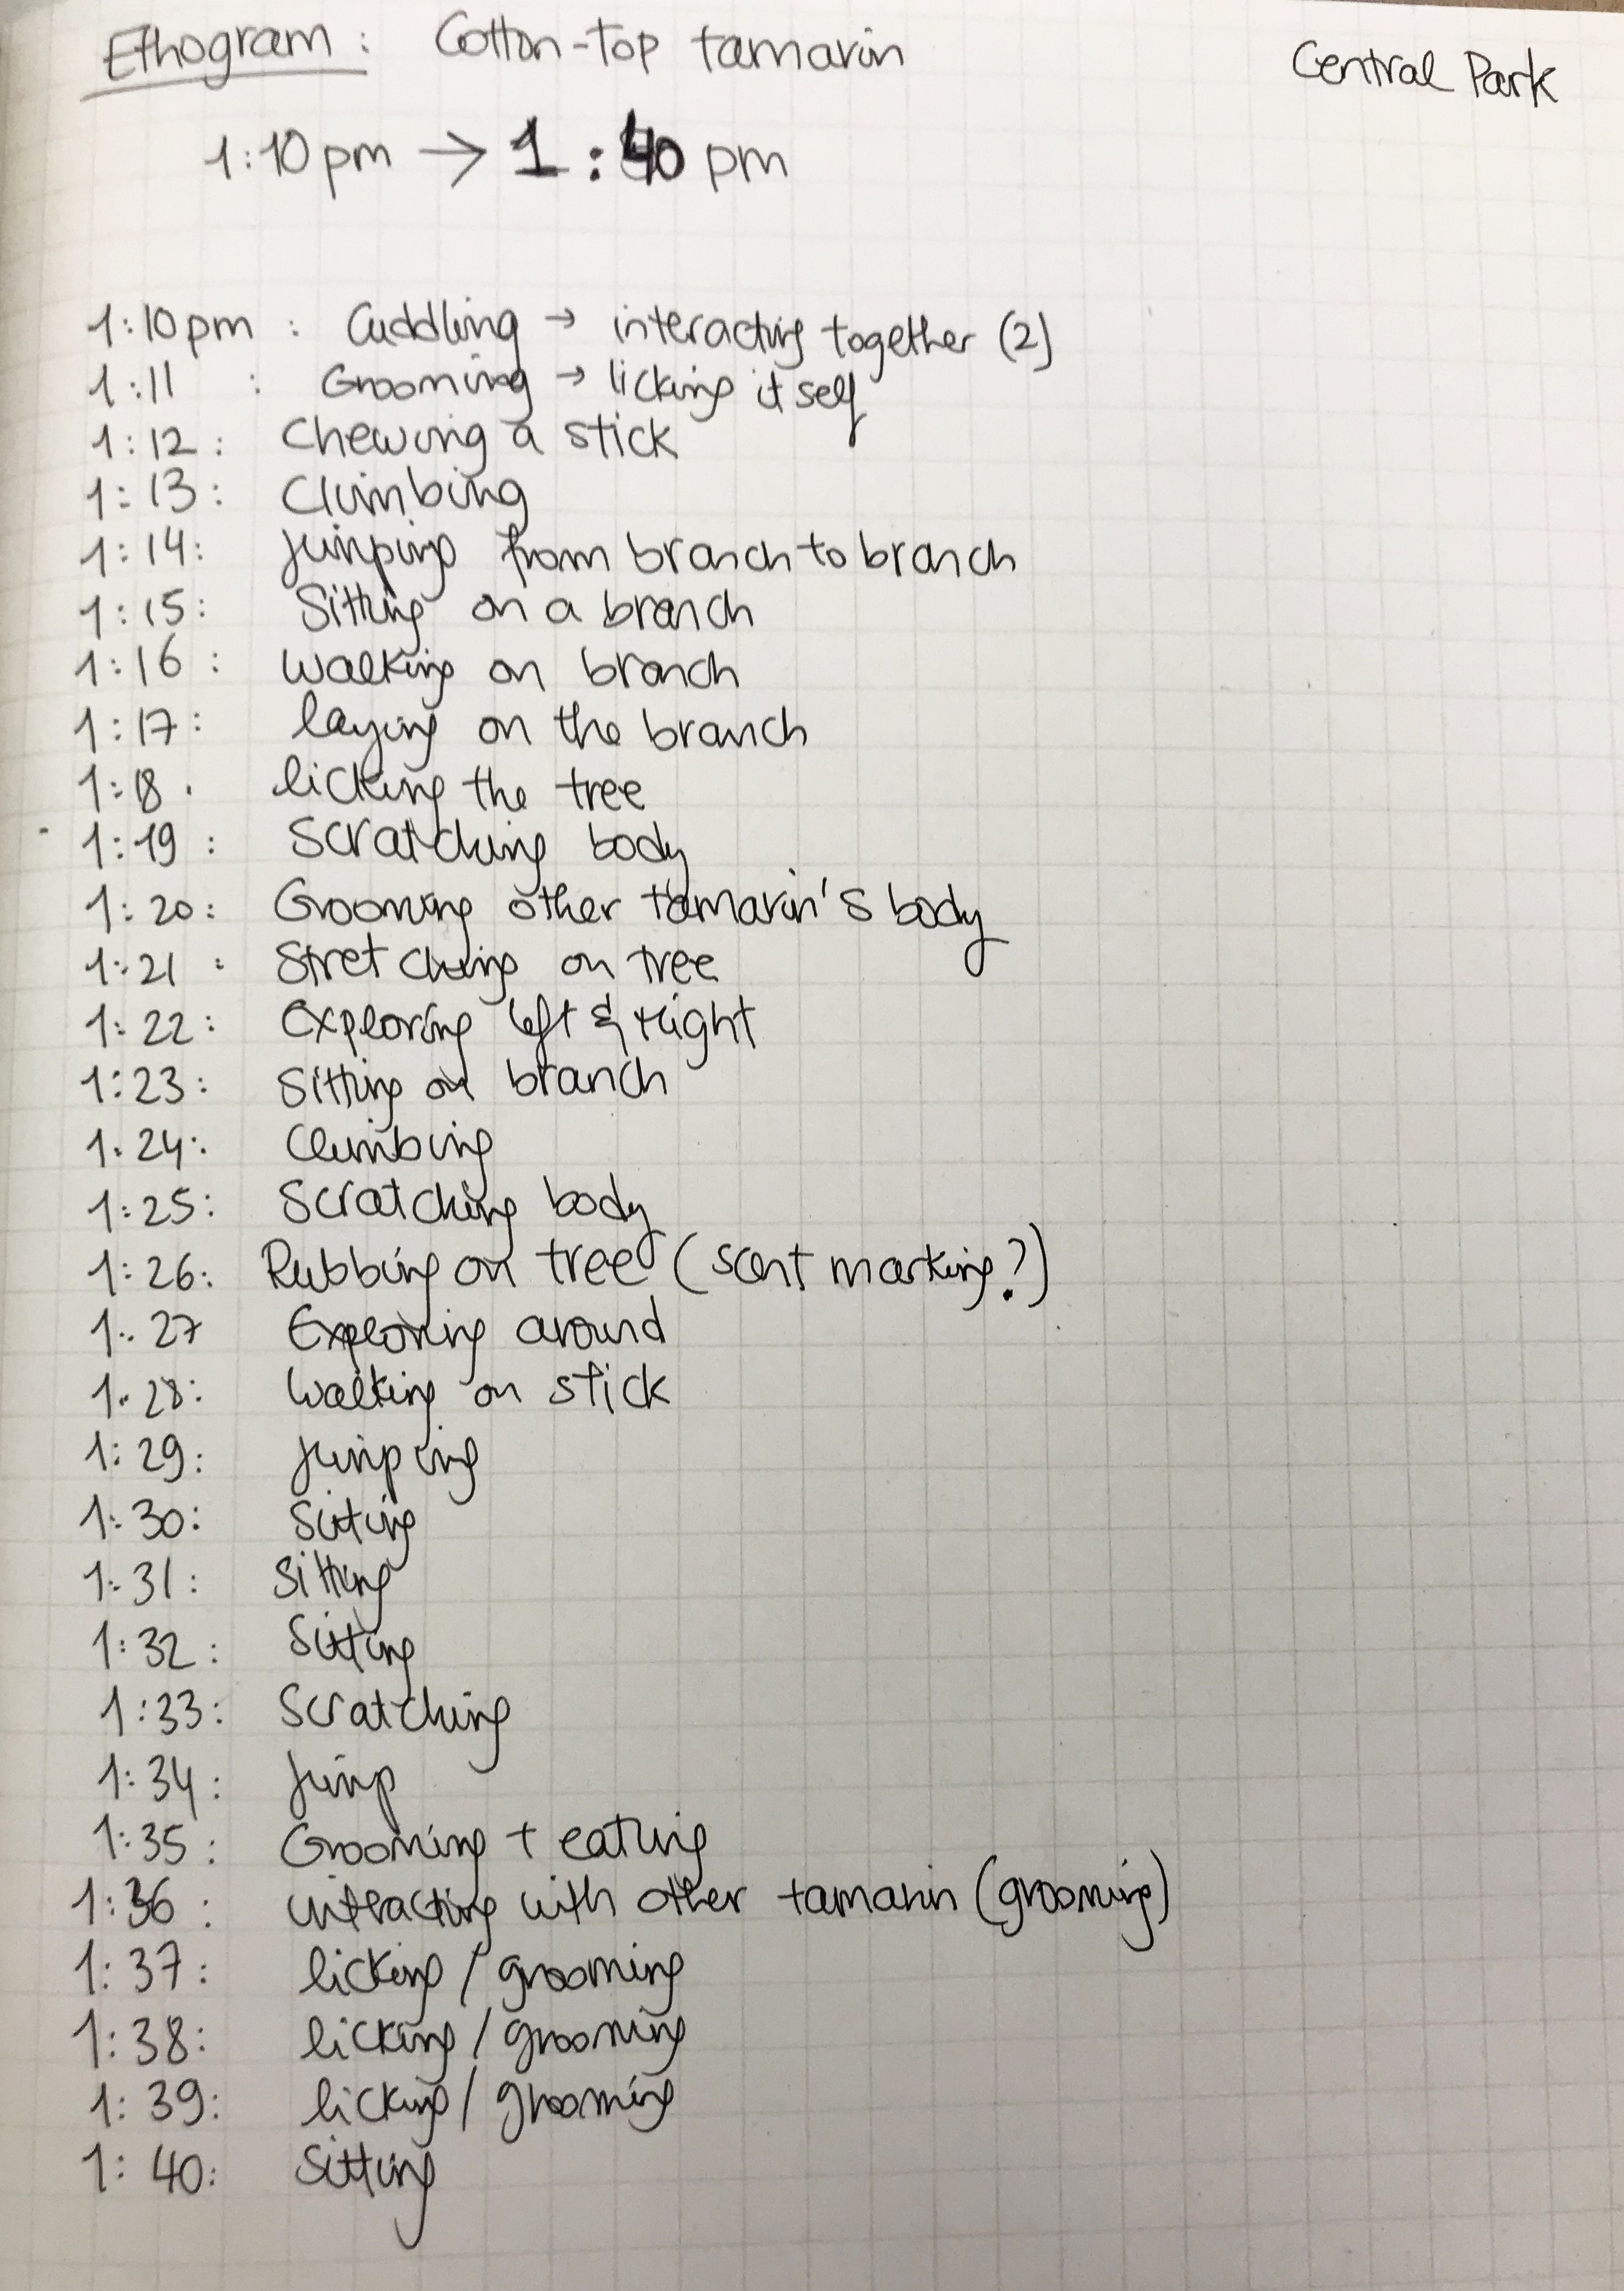 Ethogram: Cotton-top tamarin
Central Park
1:10 pm → 1:40 pm
1:10 pm : Cuddling → interacting together (2)
1:11 : Grooming → licking itself
1:12: Chewing a stick
1:13: Climbing
1:14: Jumping from branch to branch
1:15: Sitting on a branch
1:16: walking on branch
1:17: laying on the branch
1:18. licking the tree
1:19: Scratching body
1:20: Grooming other tamarin's body
1:21: Stretching on tree
1:22: Exploring left & right
1:23: Sitting on branch
1:24: Climbing
1:25: Scratching body
1:26: Rubbing on tree (scent marking?)
1:27 Exploring around
1:28: Walking on stick
1:29: Jumping
1:30: Sitting
1:31: Sitting
1:32: Sitting
1:33: Scratching
1:34: Jump
1:35: Grooming + eating
1:36: interacting with other tamarin (grooming)
1:37: licking / grooming
1:38: licking / grooming
1:39: licking / grooming
1:40: Sitting